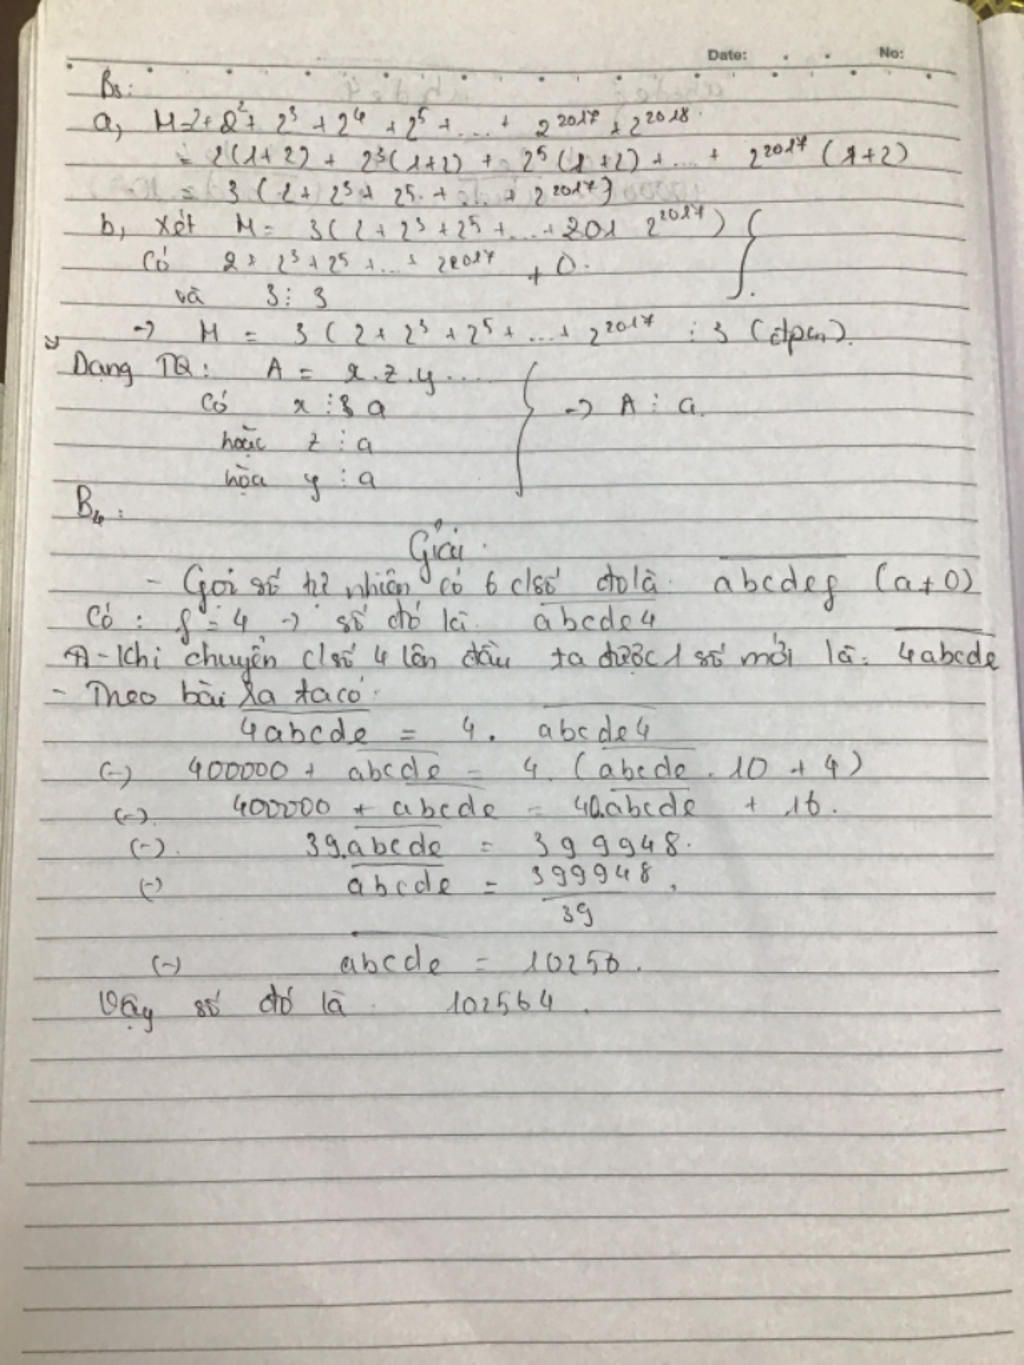 Date: No:
B3:
a, M=2+2²+ 2³ + 2⁴ + 2⁵ + ... + 2²⁰¹⁷ + 2²⁰¹⁸.
= 2(1+2) + 2³(1+2) + 2⁵(1+2) + ... + 2²⁰¹⁷ (1+2)
= 3 (2 + 2³ + 2⁵. + ... + 2²⁰¹⁷)
b, Xét M = 3(2 + 2³ + 2⁵ + ... + 201 2²⁰¹⁷)
Có 2 + 2³ + 2⁵ + ... + 2²⁰¹⁷ ≠ 0.
và 3 ⋮ 3
→ M = 3 (2 + 2³ + 2⁵ + ... + 2²⁰¹⁷ ⋮ 3 (đpcm).
Dạng TQ: A = x.z.y....
Có x ⋮ a → A ⋮ a.
hoặc z ⋮ a
hòa y ⋮ a
B4:
Giải.
- Gọi số tự nhiên có 6 c/số đó là abcdef (a≠0)
Có: f = 4 → số đó là abcde4
- Khi chuyển c/số 4 lên đầu ta được 1 số mới là: 4abcde
- Theo bài ra ta có:
4abcde = 4. abcde4
(-) 400000 + abcde = 4. (abcde . 10 + 4)
(-) 400000 + abcde = 40.abcde + 16.
(-). 39.abcde = 399948.
(-) abcde = 399948/39.
(-) abcde = 10256.
Vậy số đó là 102564.